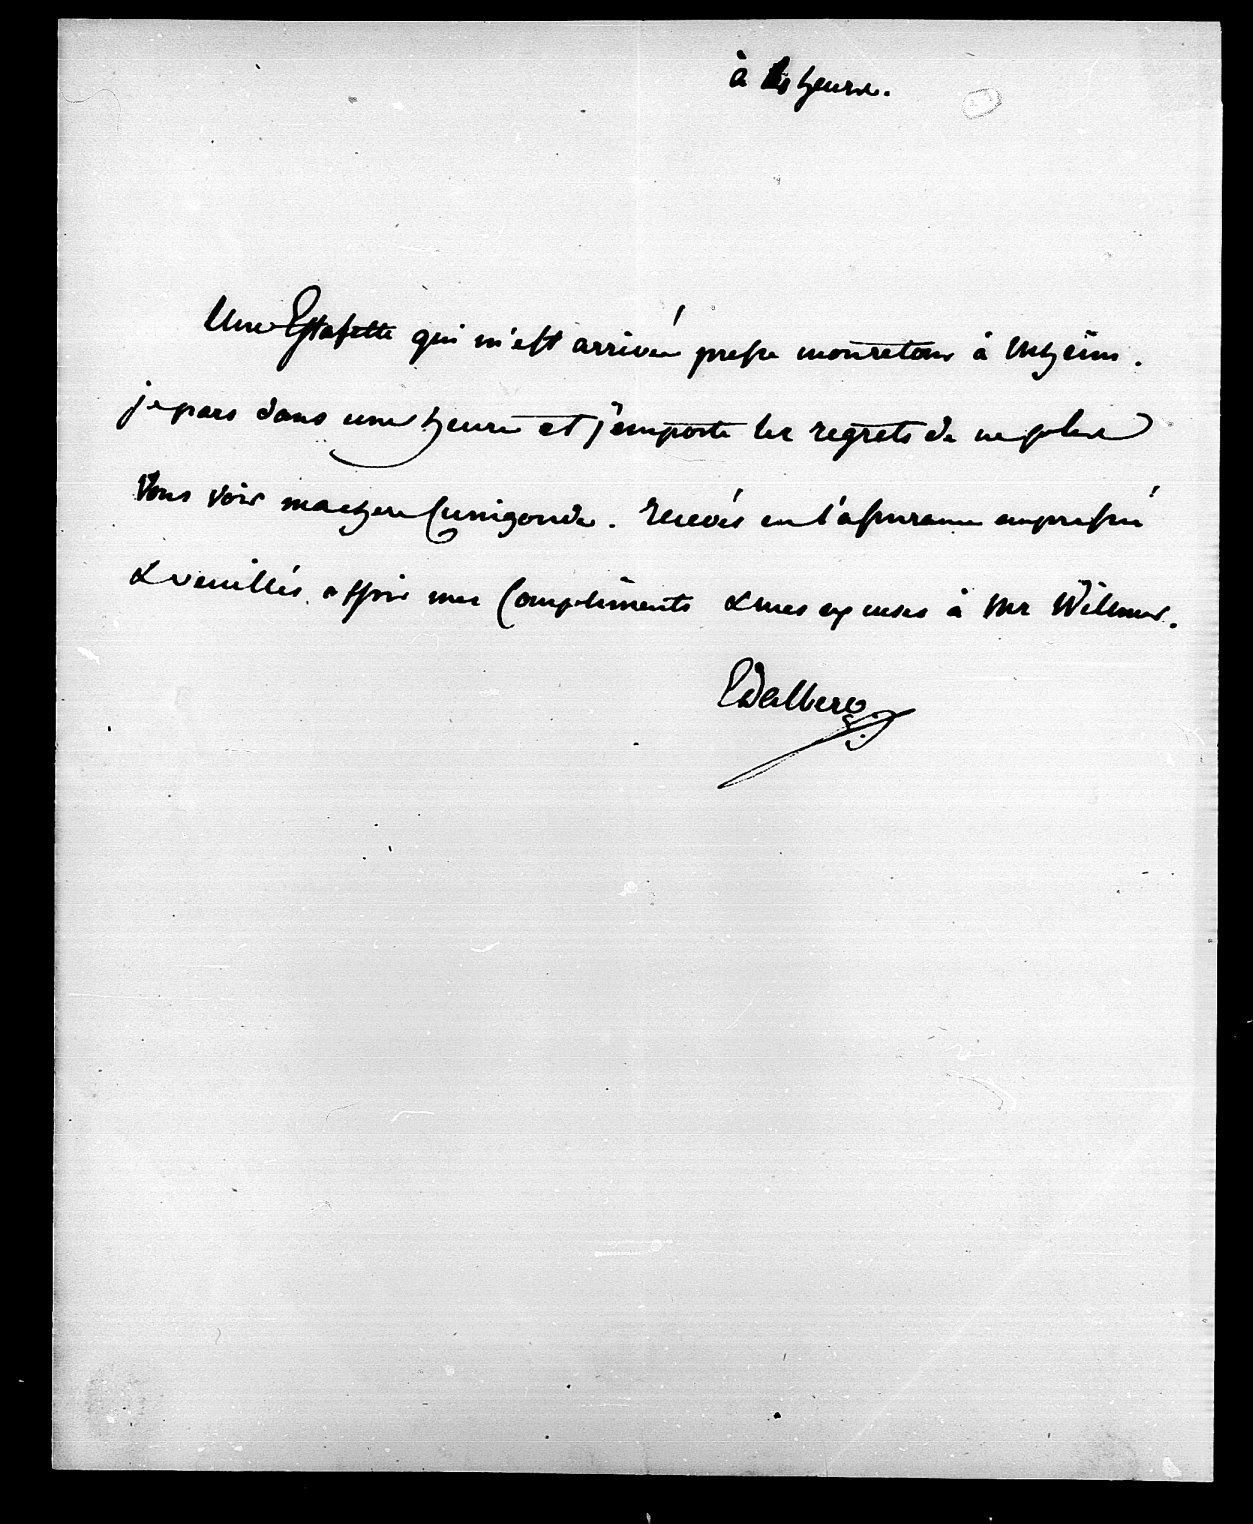 à heures.
Une Estafette qui m'est arrivée presse mon retour à Mheim.
je pars dans une heure et j'emporte les regrets de ne plus
Vous voir ma chere Cunigonde. recevés en l'assurance empressée
& veuillés offrir mes Compliments & mes excuses à Mr Willmer.
Edalberg